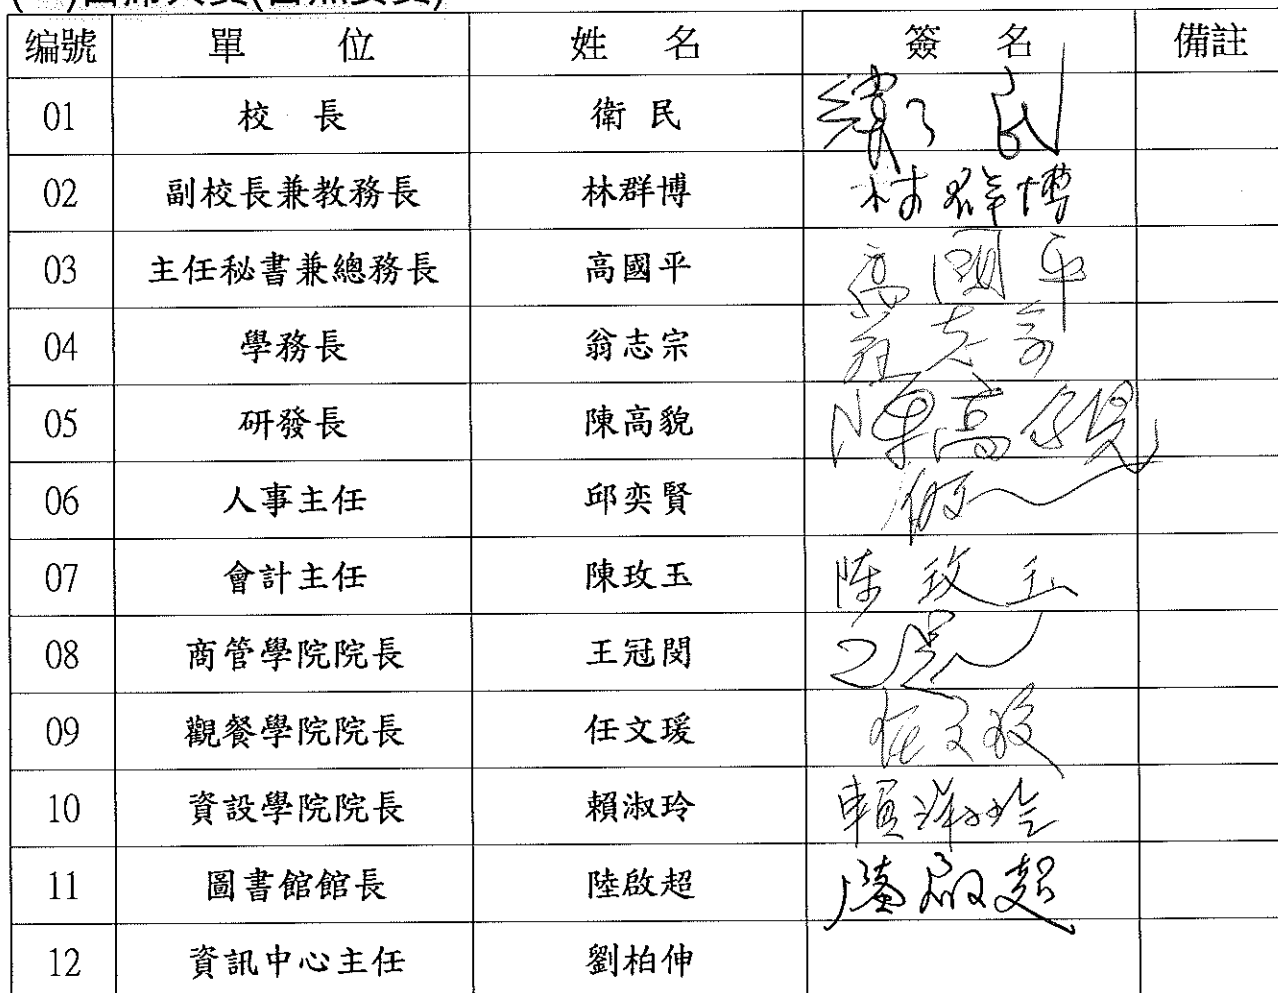 編號 單 位 姓 名 簽 名 備註
01 校 長 衛 民
02 副校長兼教務長 林群博 林群博
03 主任秘書兼總務長 高國平 高國平
04 學務長 翁志宗
05 研發長 陳高貌 陳高貌
06 人事主任 邱奕賢
07 會計主任 陳玫玉 陳玫玉
08 商管學院院長 王冠閔
09 觀餐學院院長 任文瑗 任文瑗
10 資設學院院長 賴淑玲 賴淑玲
11 圖書館館長 陸啟超 陸啟超
12 資訊中心主任 劉柏伸